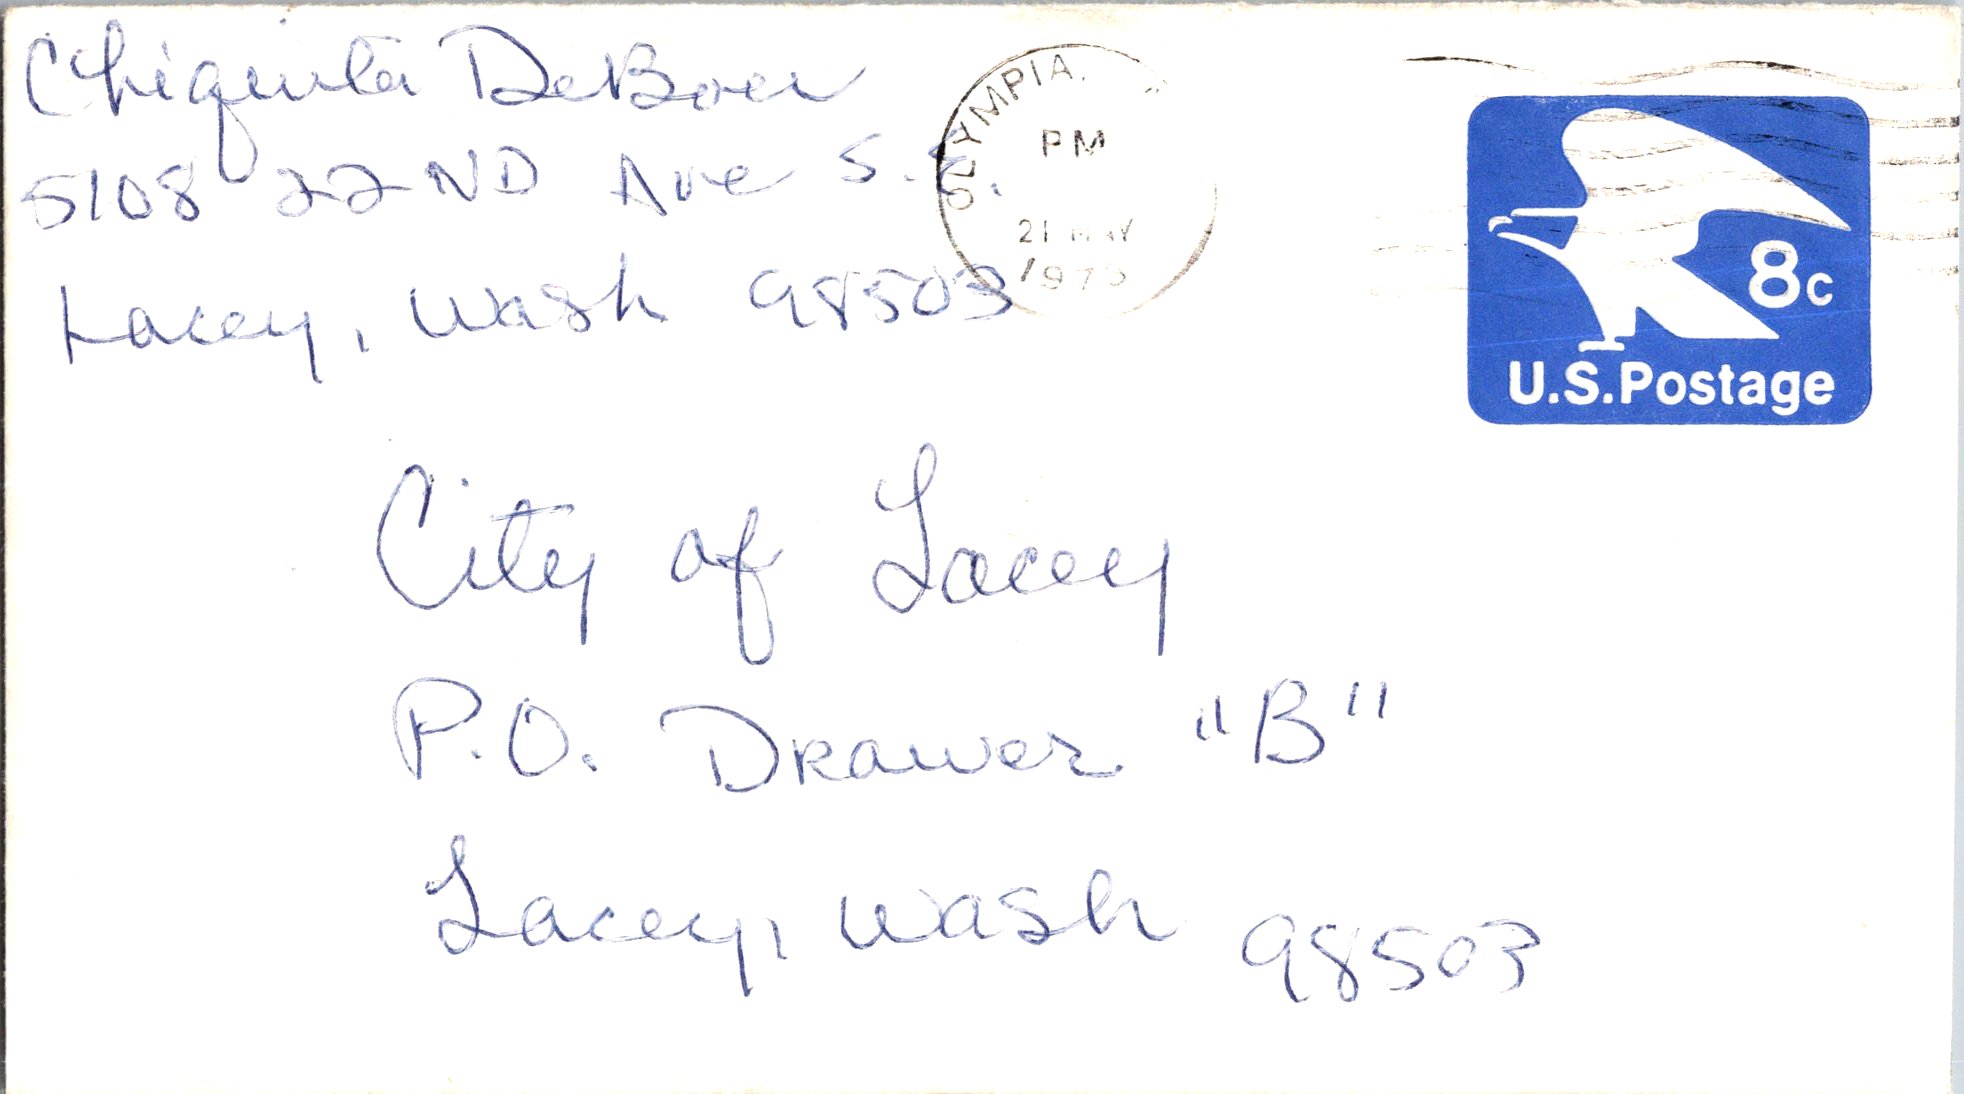 Chiquita DeBoer
5108 22ND Ave S.E.
Lacey, Wash 98503
OLYMPIA.
PM
21 MAY
8c
U.S.Postage
City of Lacey
P.O. Drawer "B"
Lacey, Wash 98503